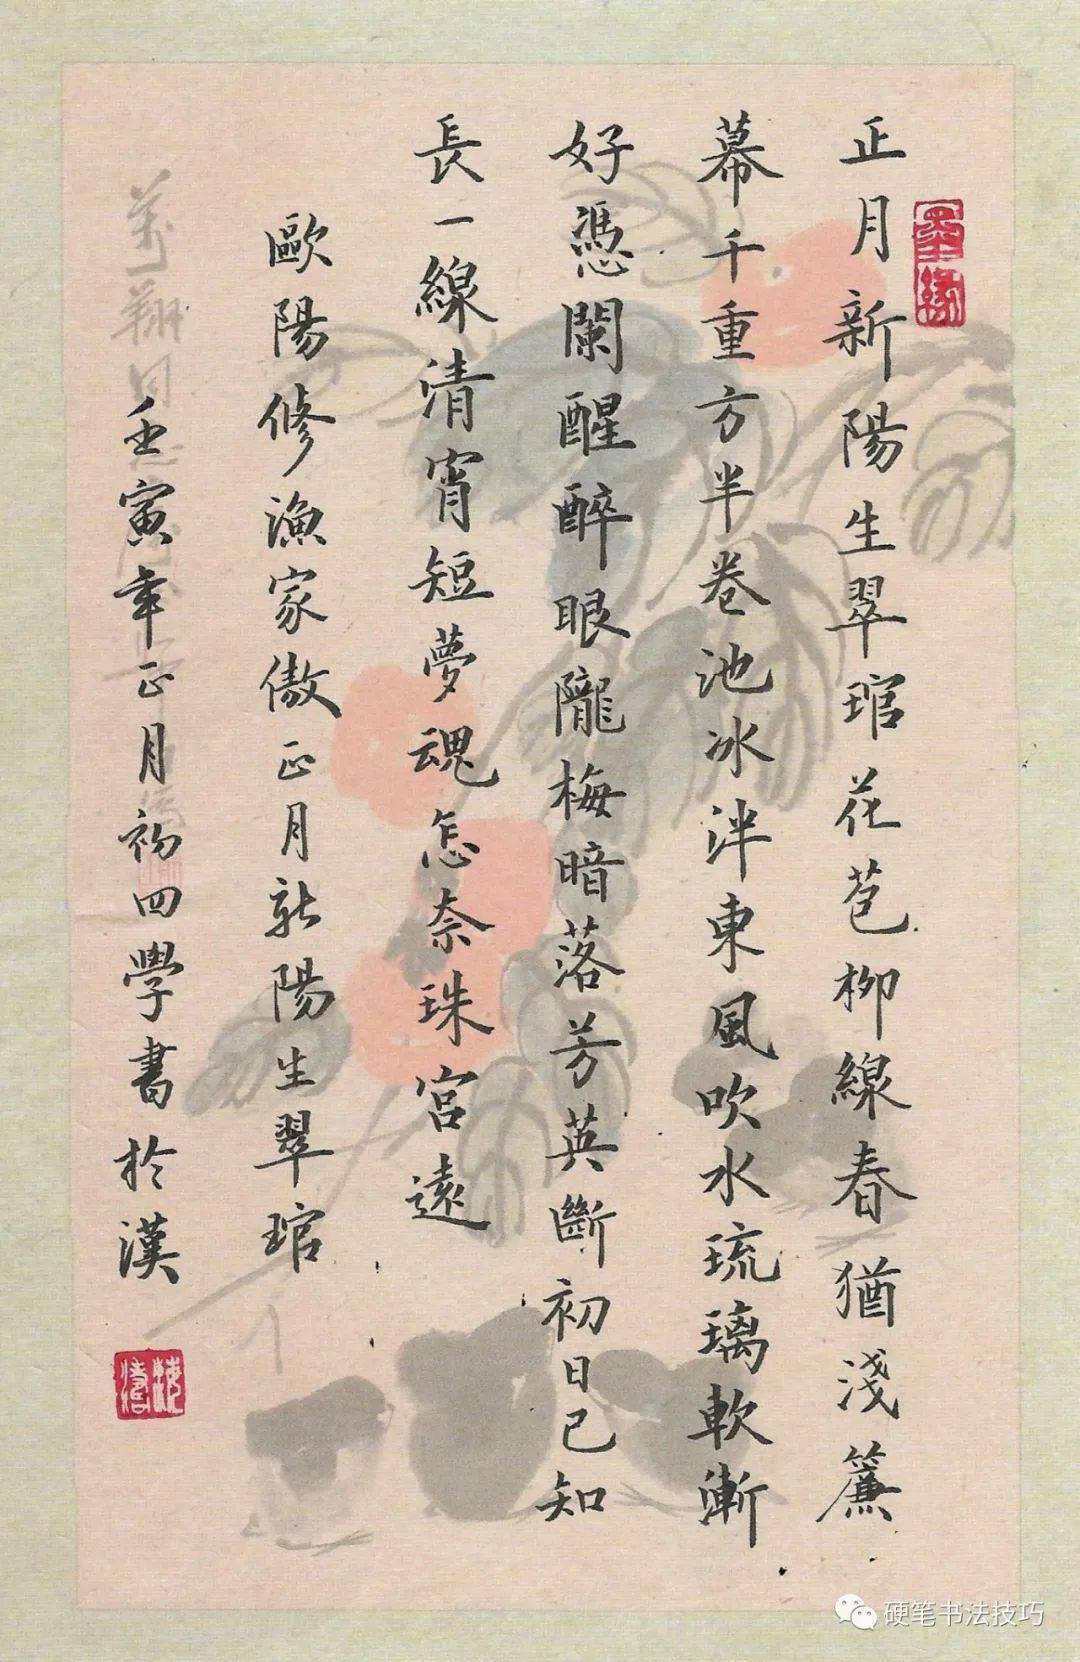 正月新陽生翠琯花苞柳線春猶淺簾
幕千重方半卷池冰泮東風吹水琉璃軟漸
好憑闌醒醉眼隴梅暗落芳英斷初日已知
長一線清宵短夢魂怎奈珠宮遠
歐陽修漁家傲正月新陽生翠琯
壬寅年正月初四學書於漢
墨緣
硬笔书法技巧